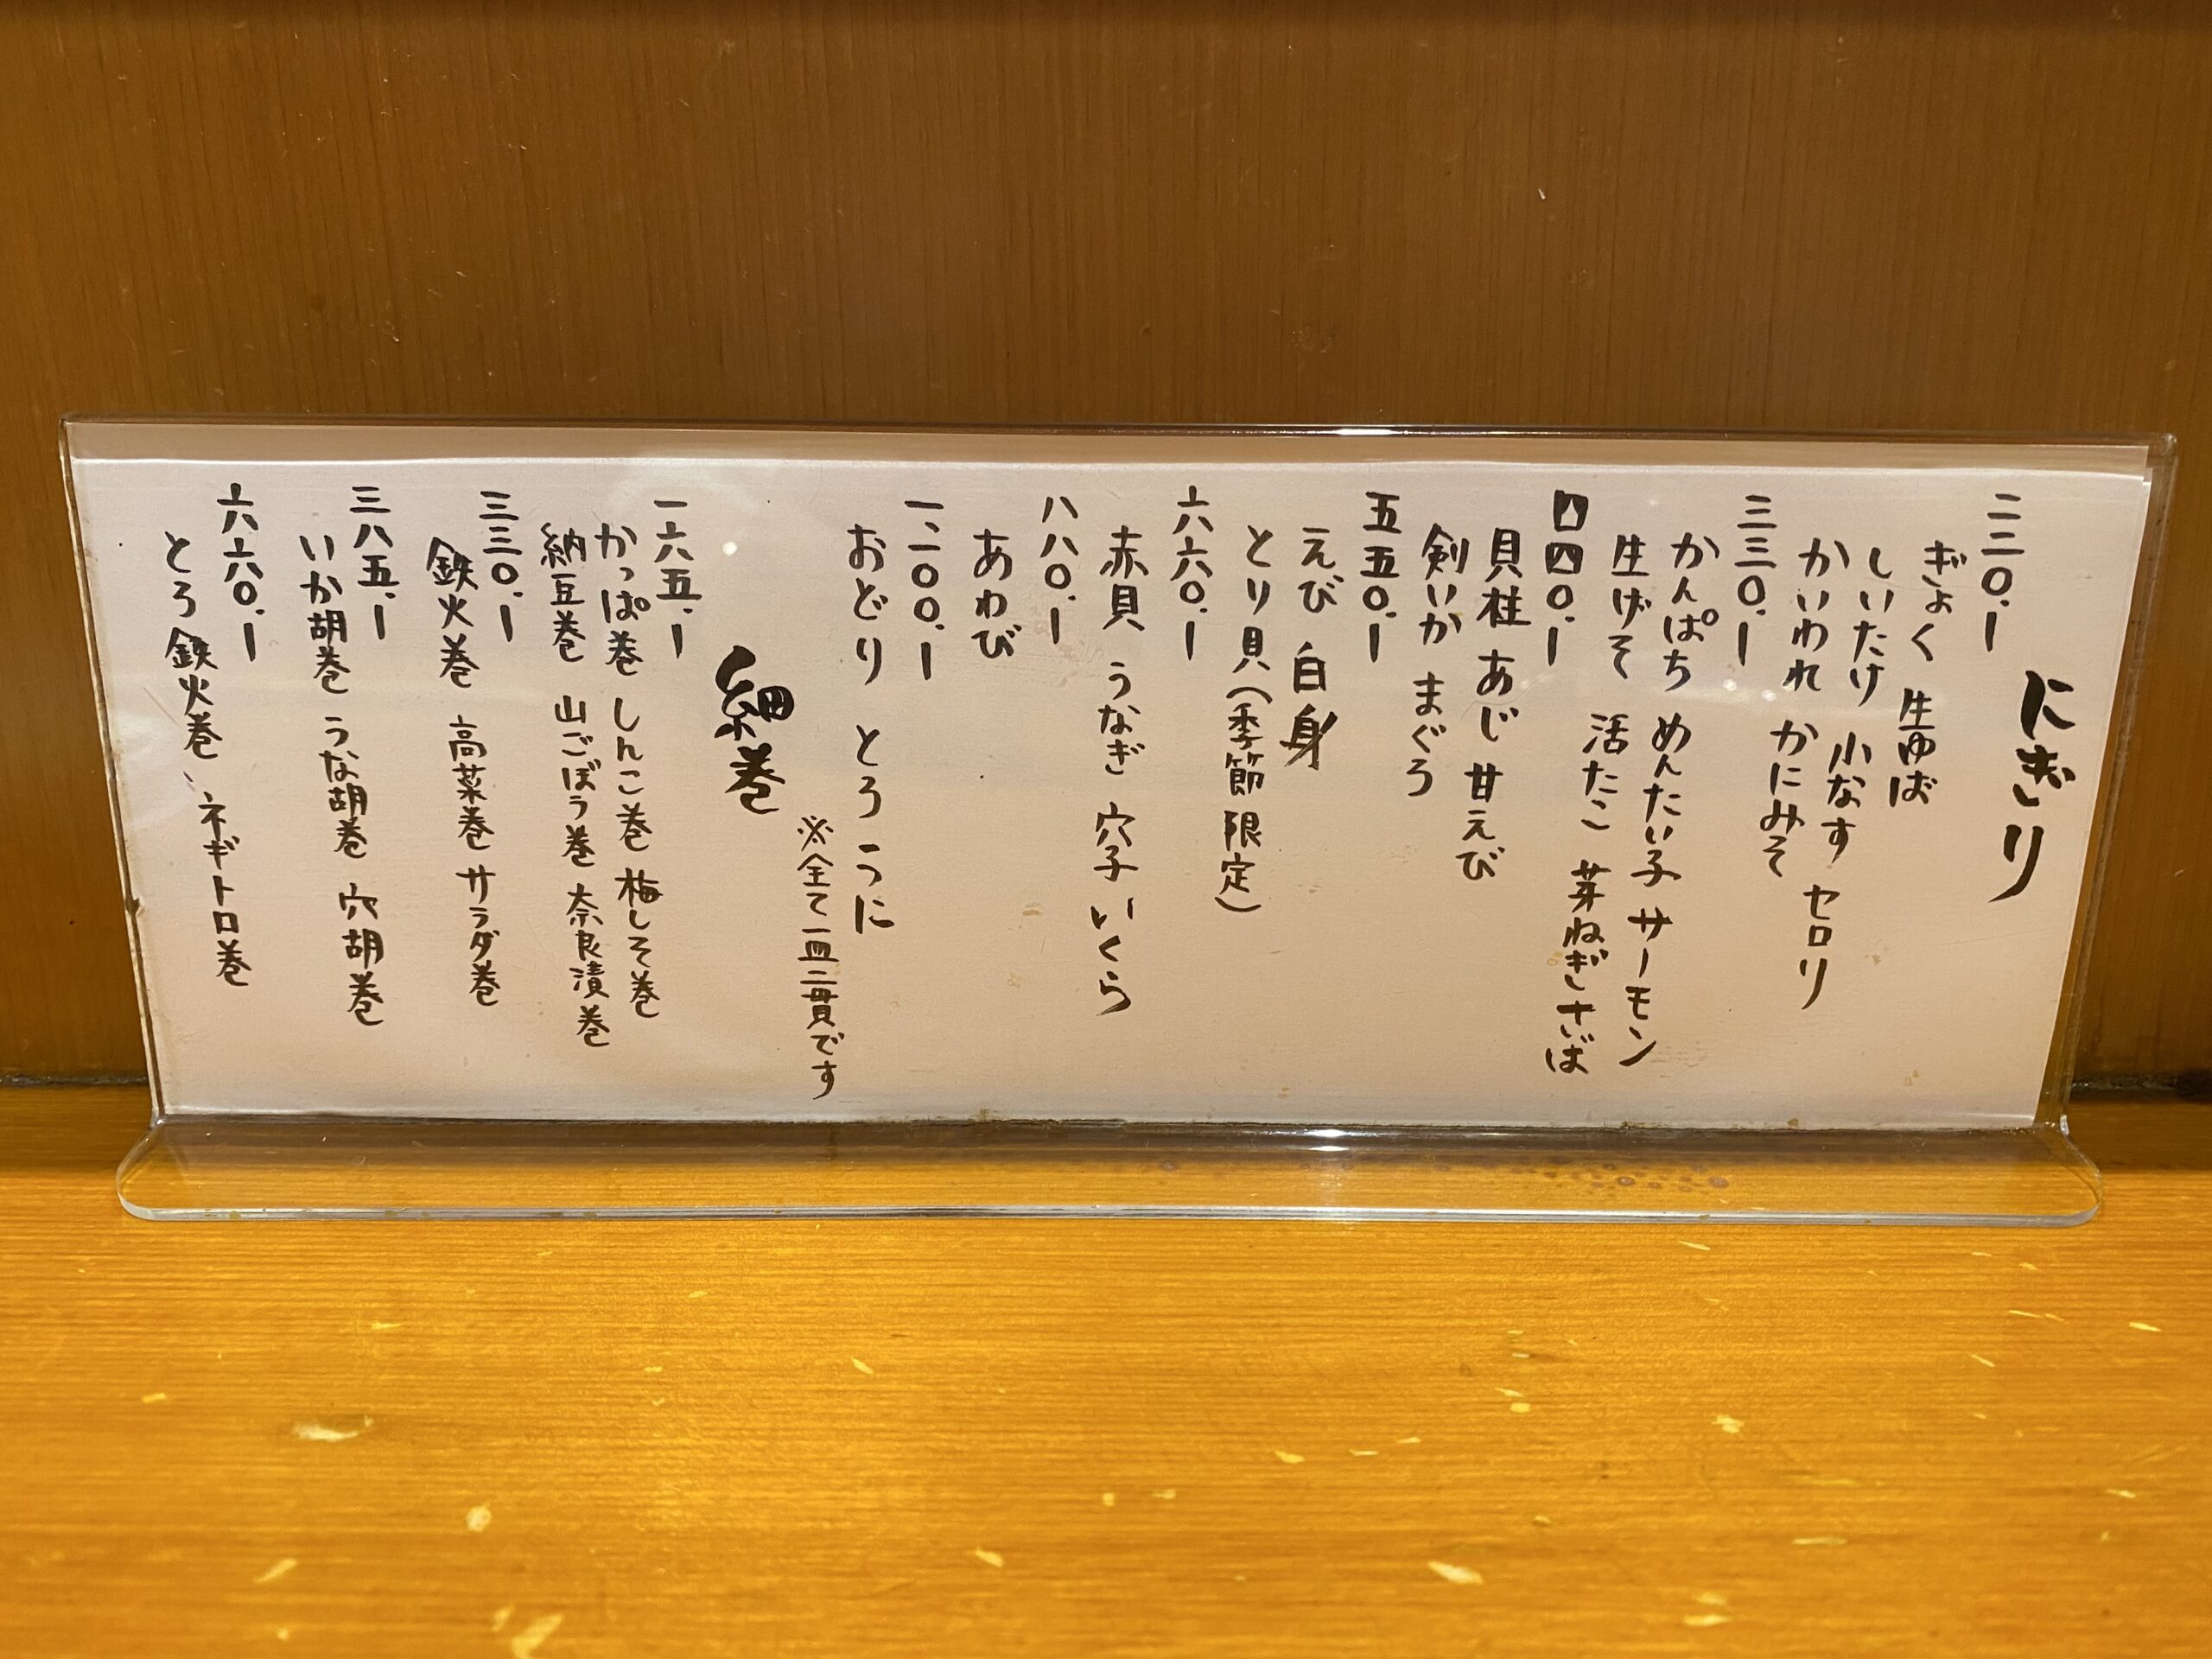 にぎり
二二〇.ー
ぎょく 生ゆば
しいたけ 小なす セロリ
かいわれ かにみそ
三三〇.ー
かんぱち めんたい子 サーモン
生げそ 活たこ 芽ねぎ さば
四四〇.ー
貝柱 あじ 甘えび
剣いか まぐろ
五五〇.ー
えび 白身
とり貝(季節限定)
六六〇.ー
赤貝 うなぎ 穴子 いくら
八八〇.ー
あわび
一、一〇〇.ー
おどり とろ うに
※全て一皿二貫です
細巻
一六五.ー
かっぱ巻 しんこ巻 梅しそ巻
納豆巻 山ごぼう巻 奈良漬巻
三三〇.ー
鉄火巻 高菜巻 サラダ巻
三八五.ー
いか胡巻 うな胡巻 穴胡巻
六六〇.ー
とろ鉄火巻、ネギトロ巻